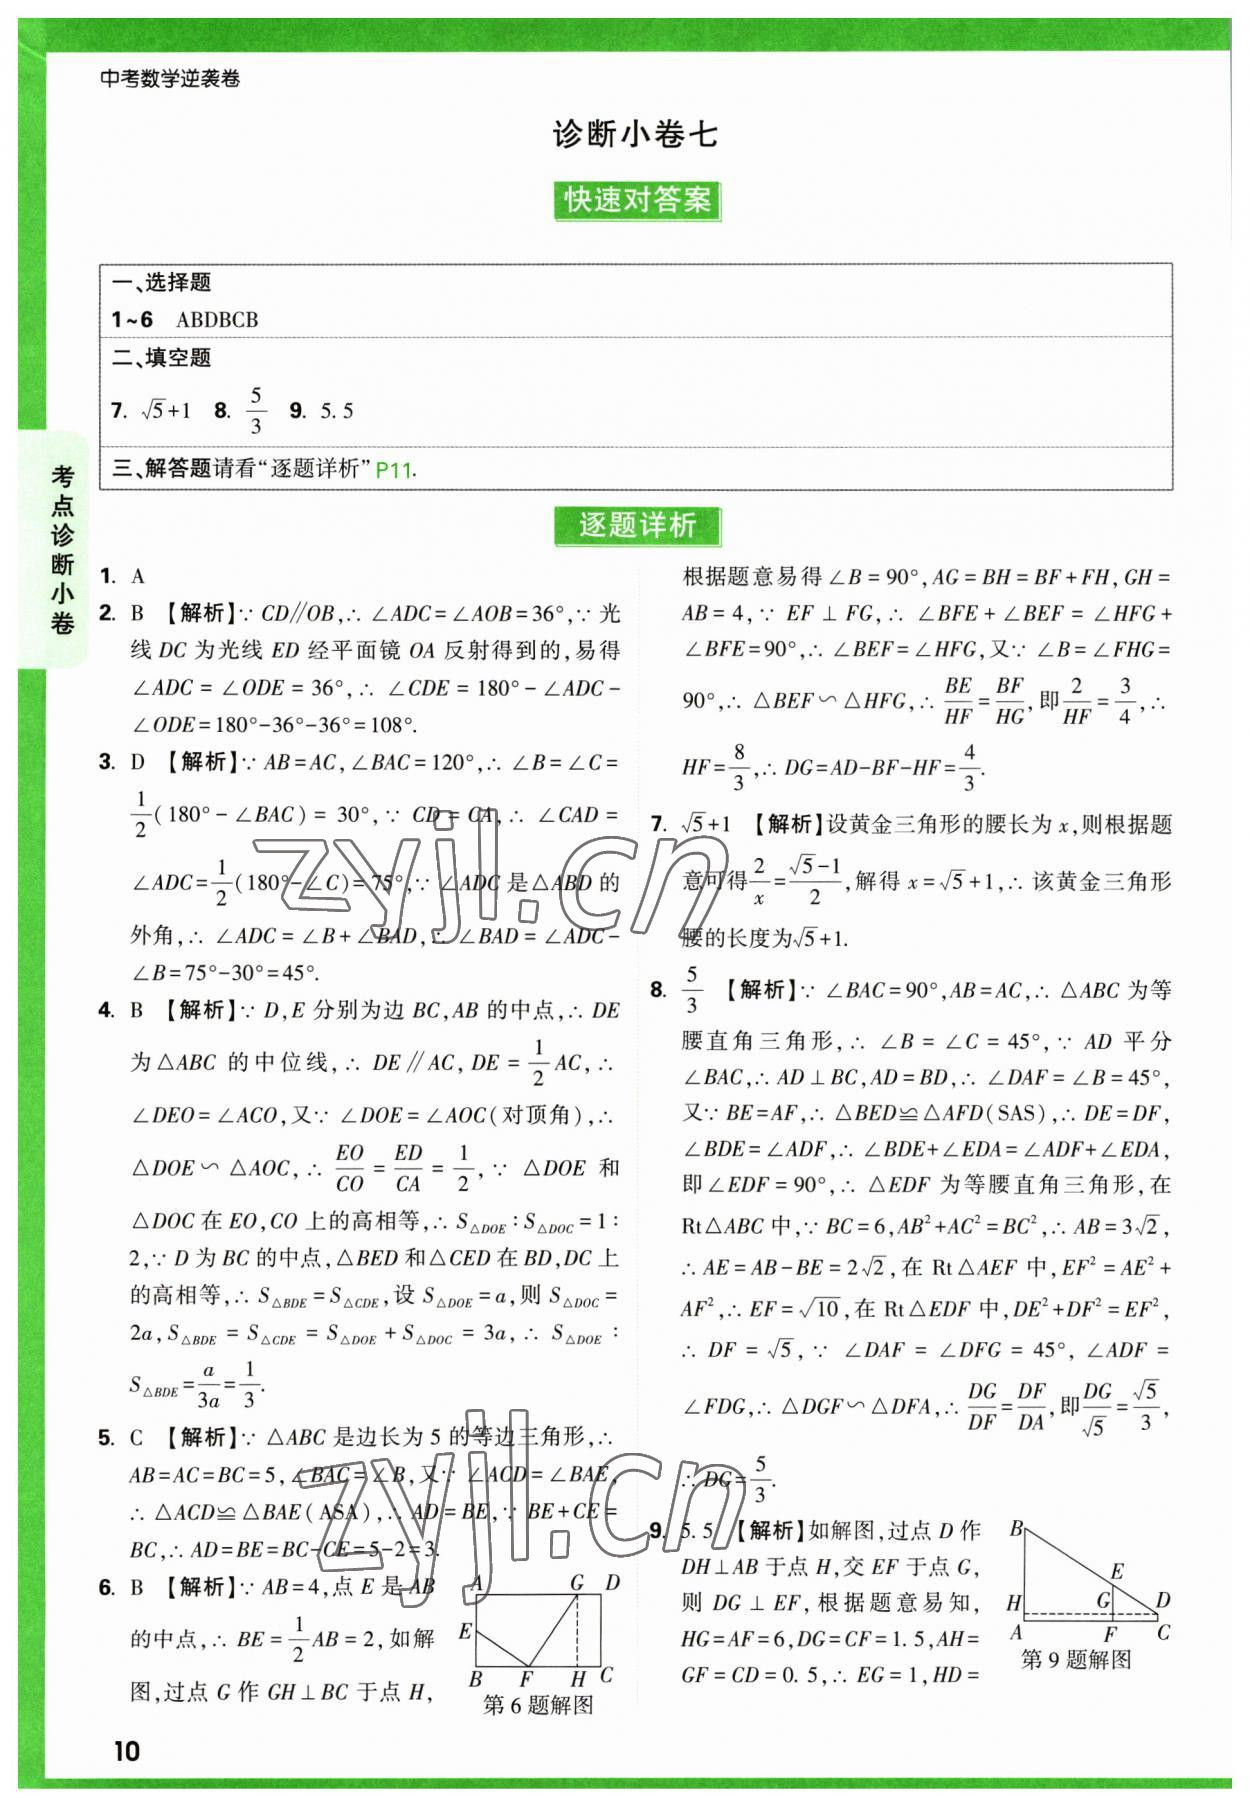 中考数学逆袭卷
诊断小卷七
快速对答案
一、选择题
1~6 ABDBCB
二、填空题
7. √5+1 8. 5/3 9. 5.5
三、解答题请看“逐题详析”P11.
考点诊断小卷
逐题详析
1. A
2. B 【解析】∵ CD∥OB,∴ ∠ADC=∠AOB=36°,∵ 光
线 DC 为光线 ED 经平面镜 OA 反射得到的,易得
∠ADC = ∠ODE = 36°,∴ ∠CDE = 180° - ∠ADC -
∠ODE=180°-36°-36°=108°.
3. D 【解析】∵ AB=AC,∠BAC=120°,∴ ∠B=∠C=
1/2(180°-∠BAC) = 30°,∵ CD = CA,∴ ∠CAD =
∠ADC=1/2(180°-∠C)=75°,∵ ∠ADC 是△ABD 的
外角,∴ ∠ADC=∠B+∠BAD,∴ ∠BAD=∠ADC-
∠B=75°-30°=45°.
4. B 【解析】∵ D,E 分别为边 BC,AB 的中点,∴ DE
为△ABC 的中位线,∴ DE∥AC,DE=1/2AC,∴
∠DEO=∠ACO,又∵ ∠DOE=∠AOC(对顶角),∴
△DOE∽△AOC,∴ EO/CO=ED/CA=1/2,∵ △DOE 和
△DOC 在 EO,CO 上的高相等,∴ S△DOE∶S△DOC=1∶
2,∵ D 为 BC 的中点,△BED 和△CED 在 BD,DC 上
的高相等,∴ S△BDE=S△CDE,设 S△DOE=a,则 S△DOC=
2a,S△BDE = S△CDE = S△DOE + S△DOC = 3a,∴ S△DOE∶
S△BDE=a/3a=1/3.
5. C 【解析】∵ △ABC 是边长为 5 的等边三角形,∴
AB=AC=BC=5,∠BAC=∠B,又∵ ∠ACD=∠BAE,
∴ △ACD≌△BAE(ASA),∴ AD=BE,∵ BE+CE=
BC,∴ AD=BE=BC-CE=5-2=3.
6. B 【解析】∵ AB=4,点 E 是 AB
的中点,∴ BE=1/2AB=2,如解
图,过点 G 作 GH⊥BC 于点 H,
A G D
E
B F H C
第 6 题解图
根据题意易得∠B=90°,AG=BH=BF+FH,GH=
AB=4,∵ EF⊥FG,∴ ∠BFE+∠BEF=∠HFG+
∠BFE=90°,∴ ∠BEF=∠HFG,又∵ ∠B=∠FHG=
90°,∴ △BEF∽△HFG,∴ BE/HF=BF/HG,即2/HF=3/4,∴
HF=8/3,∴ DG=AD-BF-HF=4/3.
7. √5+1 【解析】设黄金三角形的腰长为 x,则根据题
意可得2/x=(√5-1)/2,解得 x=√5+1,∴ 该黄金三角形
腰的长度为√5+1.
8. 5/3 【解析】∵ ∠BAC=90°,AB=AC,∴ △ABC 为等
腰直角三角形,∴ ∠B=∠C=45°,∵ AD 平分
∠BAC,∴ AD⊥BC,AD=BD,∴ ∠DAF=∠B=45°,
又∵ BE=AF,∴ △BED≌△AFD(SAS),∴ DE=DF,
∠BDE=∠ADF,∴ ∠BDE+∠EDA=∠ADF+∠EDA,
即∠EDF=90°,∴ △EDF 为等腰直角三角形,在
Rt△ABC 中,∵ BC=6,AB²+AC²=BC²,∴ AB=3√2,
∴ AE=AB-BE=2√2,在 Rt△AEF 中,EF²=AE²+
AF²,∴ EF=√10,在 Rt△EDF 中,DE²+DF²=EF²,
∴ DF=√5,∵ ∠DAF=∠DFG=45°,∠ADF=
∠FDG,∴ △DGF∽△DFA,∴ DG/DF=DF/DA,即DG/√5=√5/3,
∴ DG=5/3.
9. 5.5 【解析】如解图,过点 D 作
DH⊥AB 于点 H,交 EF 于点 G,
则 DG⊥EF,根据题意易知,
HG=AF=6,DG=CF=1.5,AH=
GF=CD=0.5,∴ EG=1,HD=
B
E
H G D
A F C
第 9 题解图
zyjl.cn
zyjl.cn
10